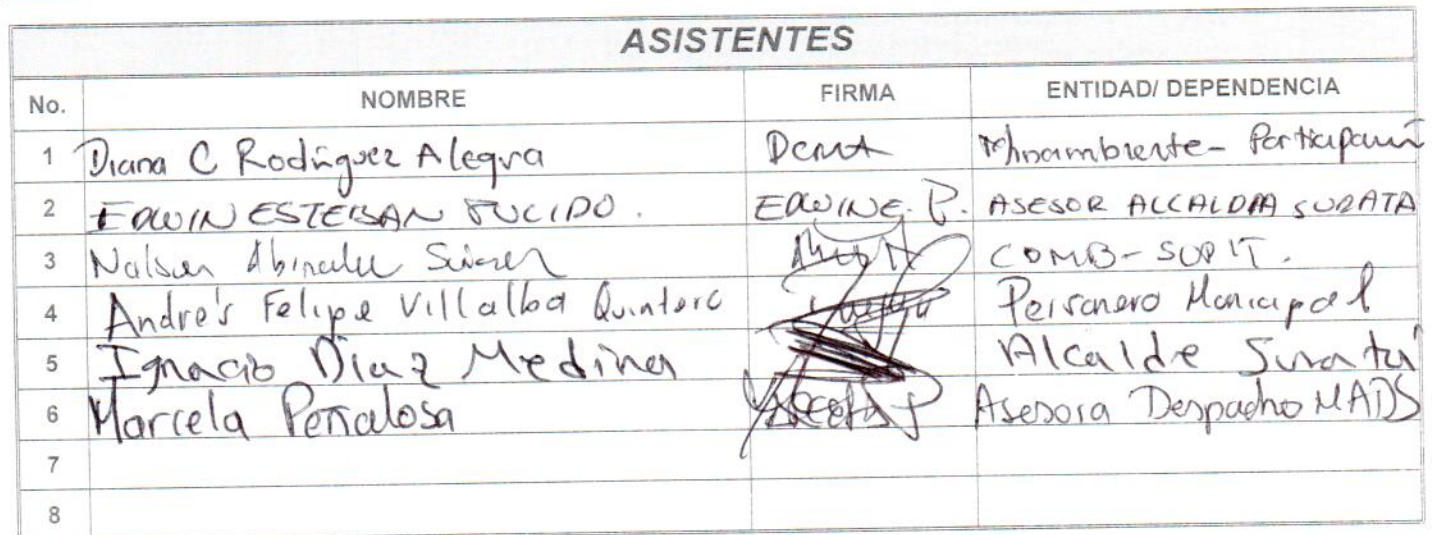 ASISTENTES
No. NOMBRE FIRMA ENTIDAD/ DEPENDENCIA
1 Diana C Rodríguez Alegria Minambiente - Participación
2 EDWIN ESTEBAN PULIDO. EDWIN E. P. ASESOR ALCALDIA SURATA
3 Nelson Suárez COMB-SURIT.
4 Andrés Felipe Villalba Quintero Personero Municipal
5 Ignacio Díaz Medina Alcalde Suratá
6 Marcela Peñalosa Asesora Despacho MADS
7
8